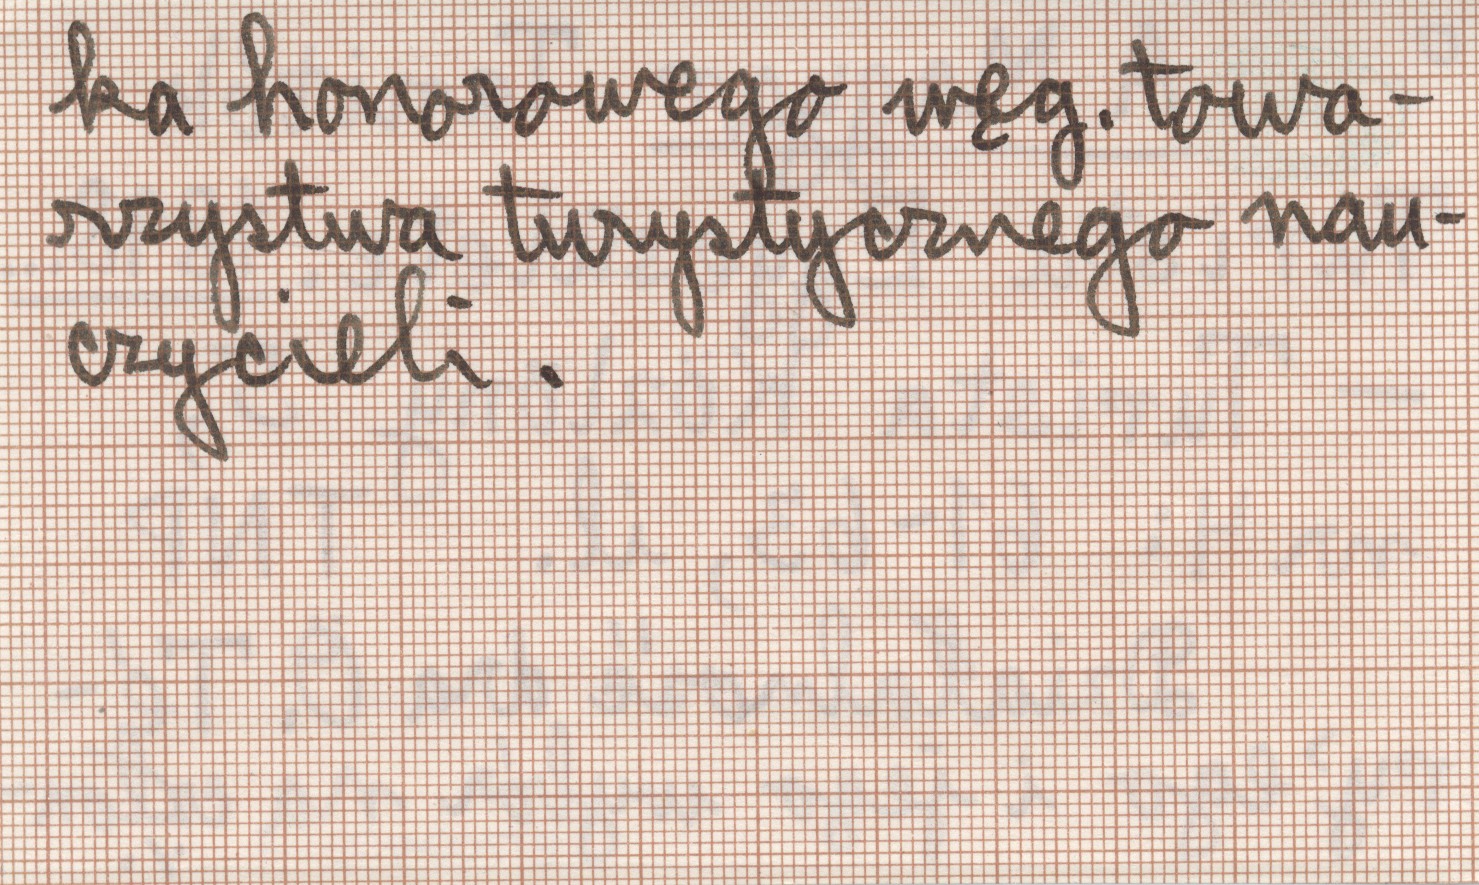 ka honorowego węg. towa-
rzystwa turystycznego nau-
czycieli.